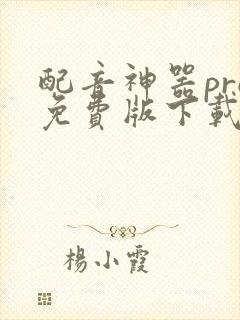 配音神器pro
免費版下載
楊小霞